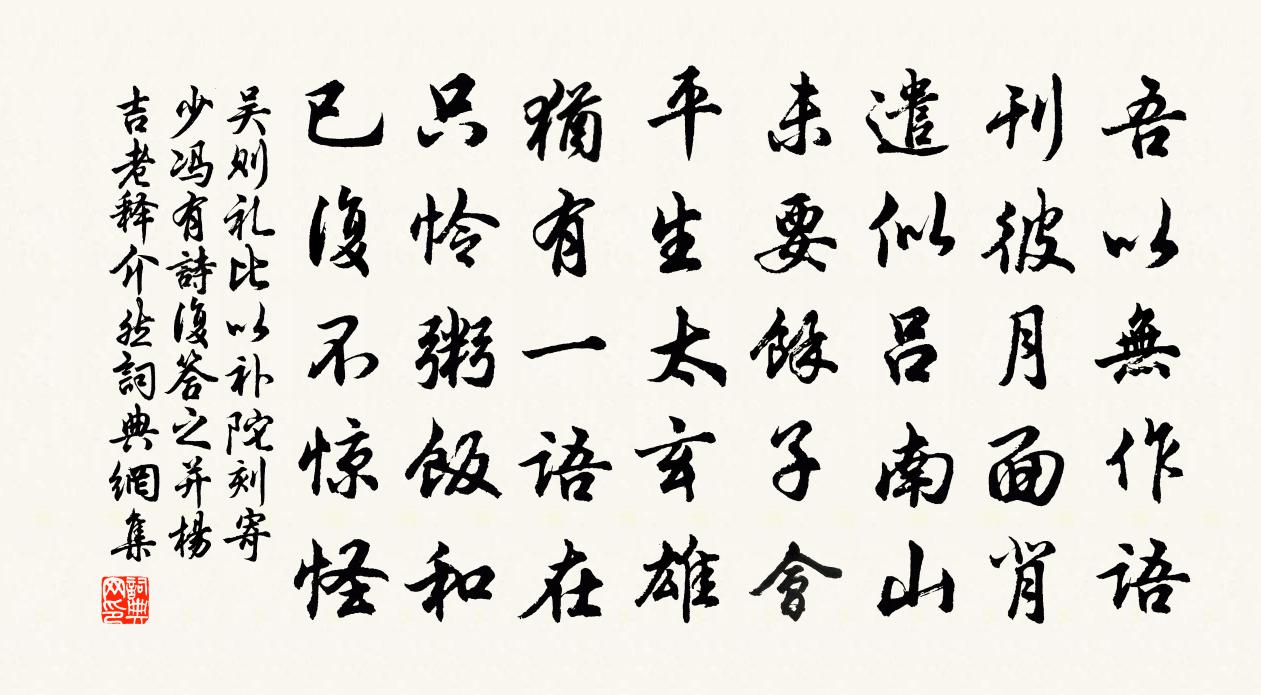 吾以無作語
刊彼月面肖
遣似呂南山
未要餘子會
平生太玄雄
猶有一語在
只怜粥飯和
已復不惊怪
吴则礼比以补陀刻寄
少冯有詩復答之并楊
吉老释介然詞典網集
詞典网印